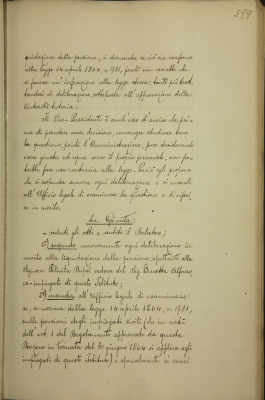 579
quidazione della pensione, si domanda se ciò sia conforme
alla legge 14 aprile 1864, n. 1731, perchè non vorrebbe che
si facesse un' infrazione alla legge stessa; tanto più trat-
tandosi di deliberazione sottoposta all'approvazione della
autorità tutoria.
Il Vice-Presidente è anch'esso d'avviso che, pri-
ma di prendere una decisione, convenga studiare bene
la questione, poichè l'Amministrazione, pur desiderando
essa giusta ed equa verso il proprio personale, non po-
trebbe fare cosa contraria alla legge. Perciò egli propone
che si sospenda ancora ogni deliberazione e si mandi
all'Ufficio legale di esaminare la questione e di riferi-
re in merito.
La Giunta:
- veduti gli atti e sentito il Relatore;
1°) sospende nuovamente ogni deliberazione in
merito alla liquidazione della pensione spettante alla
Signora Felicita Repui vedova del Rag. Alfonso,
ex-impiegato di questo Istituto;
2°) manda all'Ufficio legale di esaminare
se, a norma della legge 14 aprile 1864, n. 1731,
sulle pensioni degli impiegati civili (che in virtù
dell'art. 1 del Regolamento approvato da questa
in tornata del 30 giugno 1864 si applica agli
impiegati di questo Istituto) e specialmente ai sensi